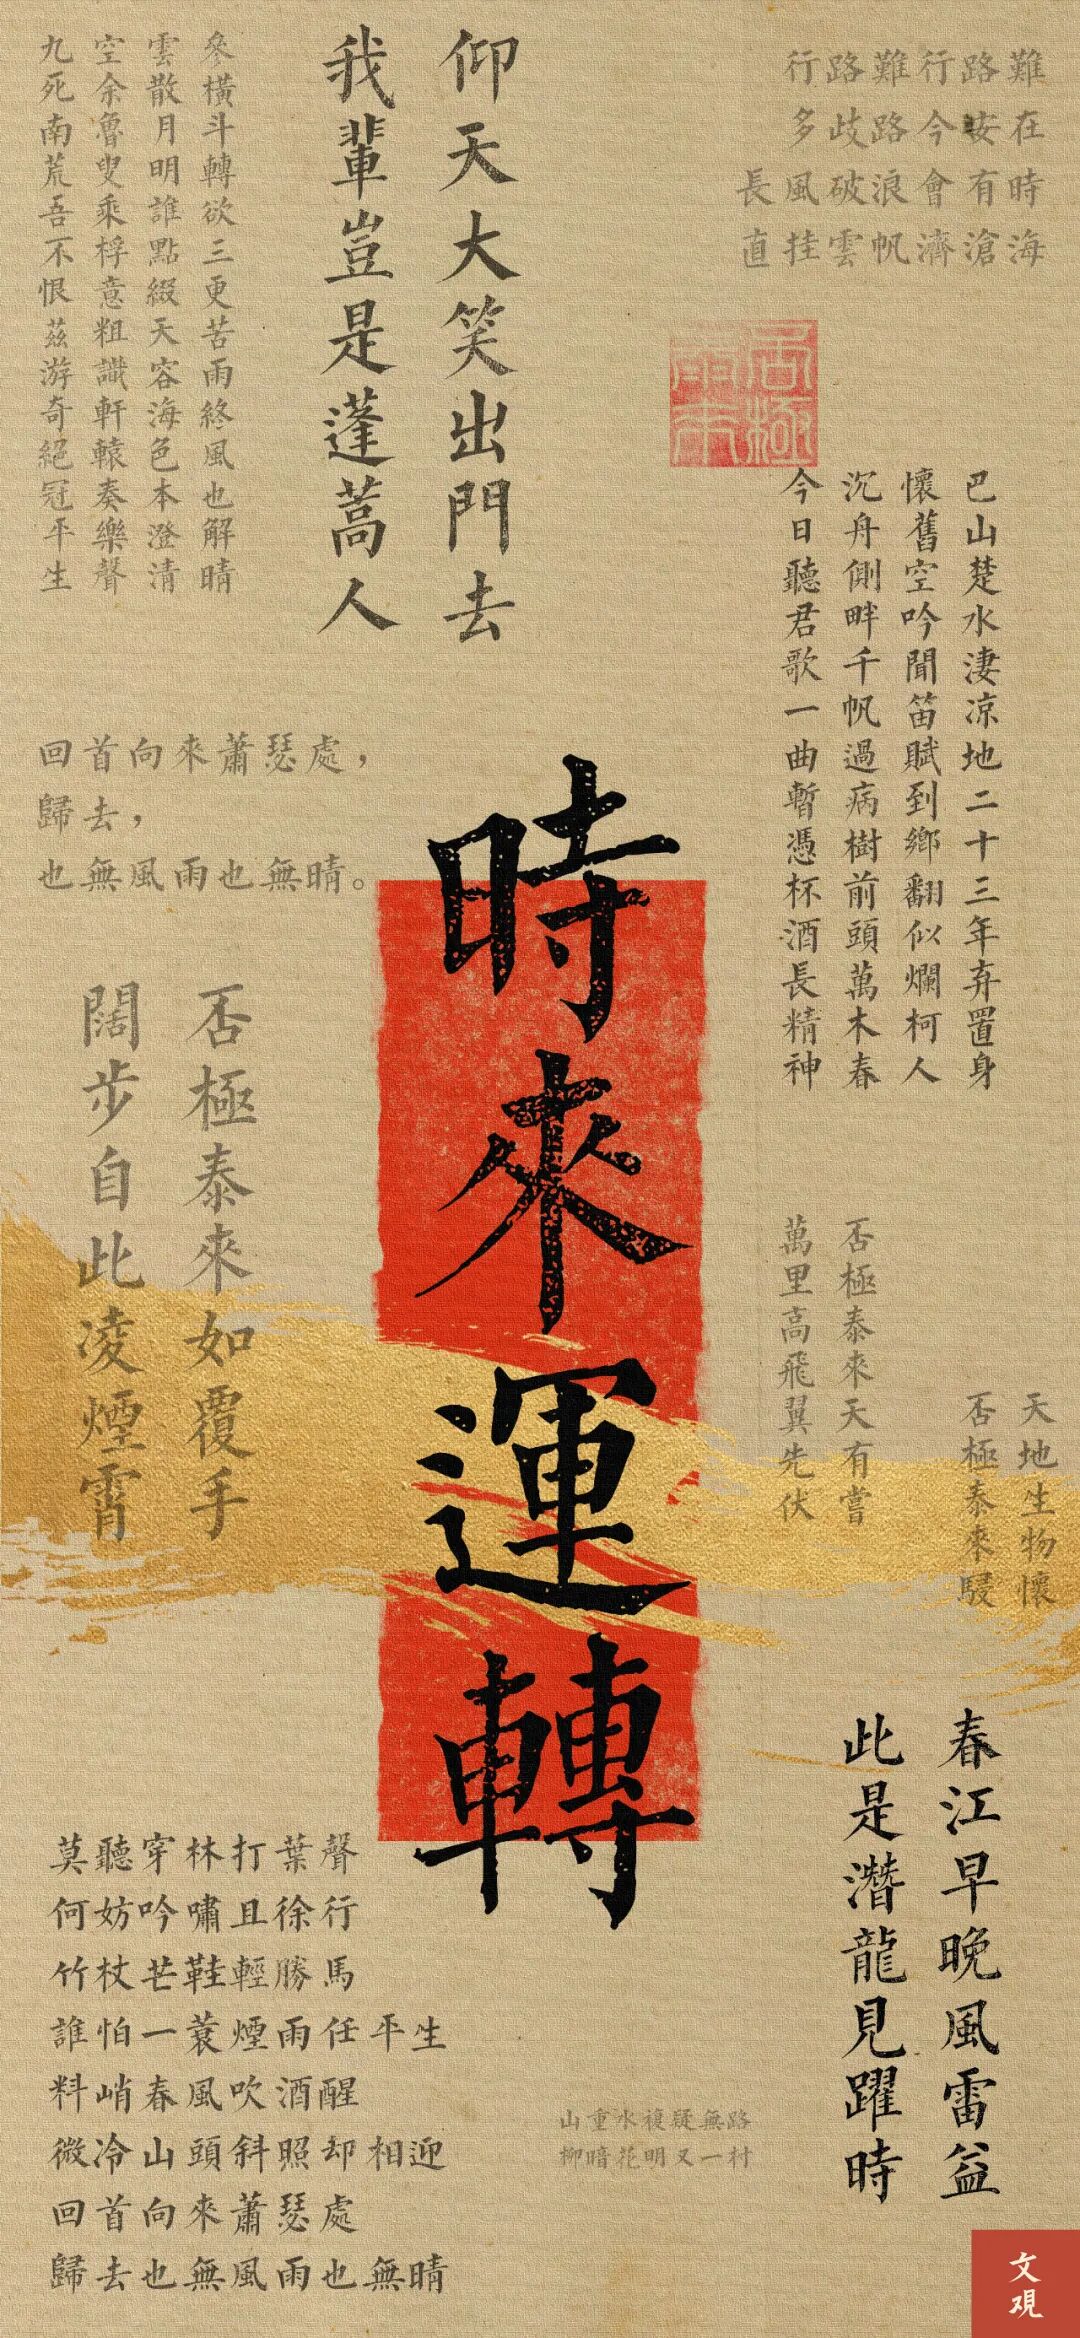 行路難行路難
多歧路今安在
長風破浪會有時
直挂雲帆濟滄海
仰天大笑出門去
我輩豈是蓬蒿人
參橫斗轉欲三更苦雨終風也解晴
雲散月明誰點綴天容海色本澄清
空余魯叟乘桴意粗識軒轅奏樂聲
九死南荒吾不恨茲游奇絕冠平生
巴山楚水淒凉地二十三年弃置身
懷舊空吟聞笛賦到鄉翻似爛柯人
沉舟側畔千帆過病樹前頭萬木春
今日聽君歌一曲暫憑杯酒長精神
回首向來蕭瑟處，
歸去，
也無風雨也無晴。
時來運轉
否極泰來如覆手
闊步自此凌煙霄
天地生物懷
否極泰來駸
否極泰來天有嘗
萬里高飛翼先伏
春江早晚風雷益
此是潛龍見躍時
莫聽穿林打葉聲
何妨吟嘯且徐行
竹杖芒鞋輕勝馬
誰怕一蓑煙雨任平生
料峭春風吹酒醒
微冷山頭斜照却相迎
回首向來蕭瑟處
歸去也無風雨也無晴
山重水複疑無路
柳暗花明又一村
文观